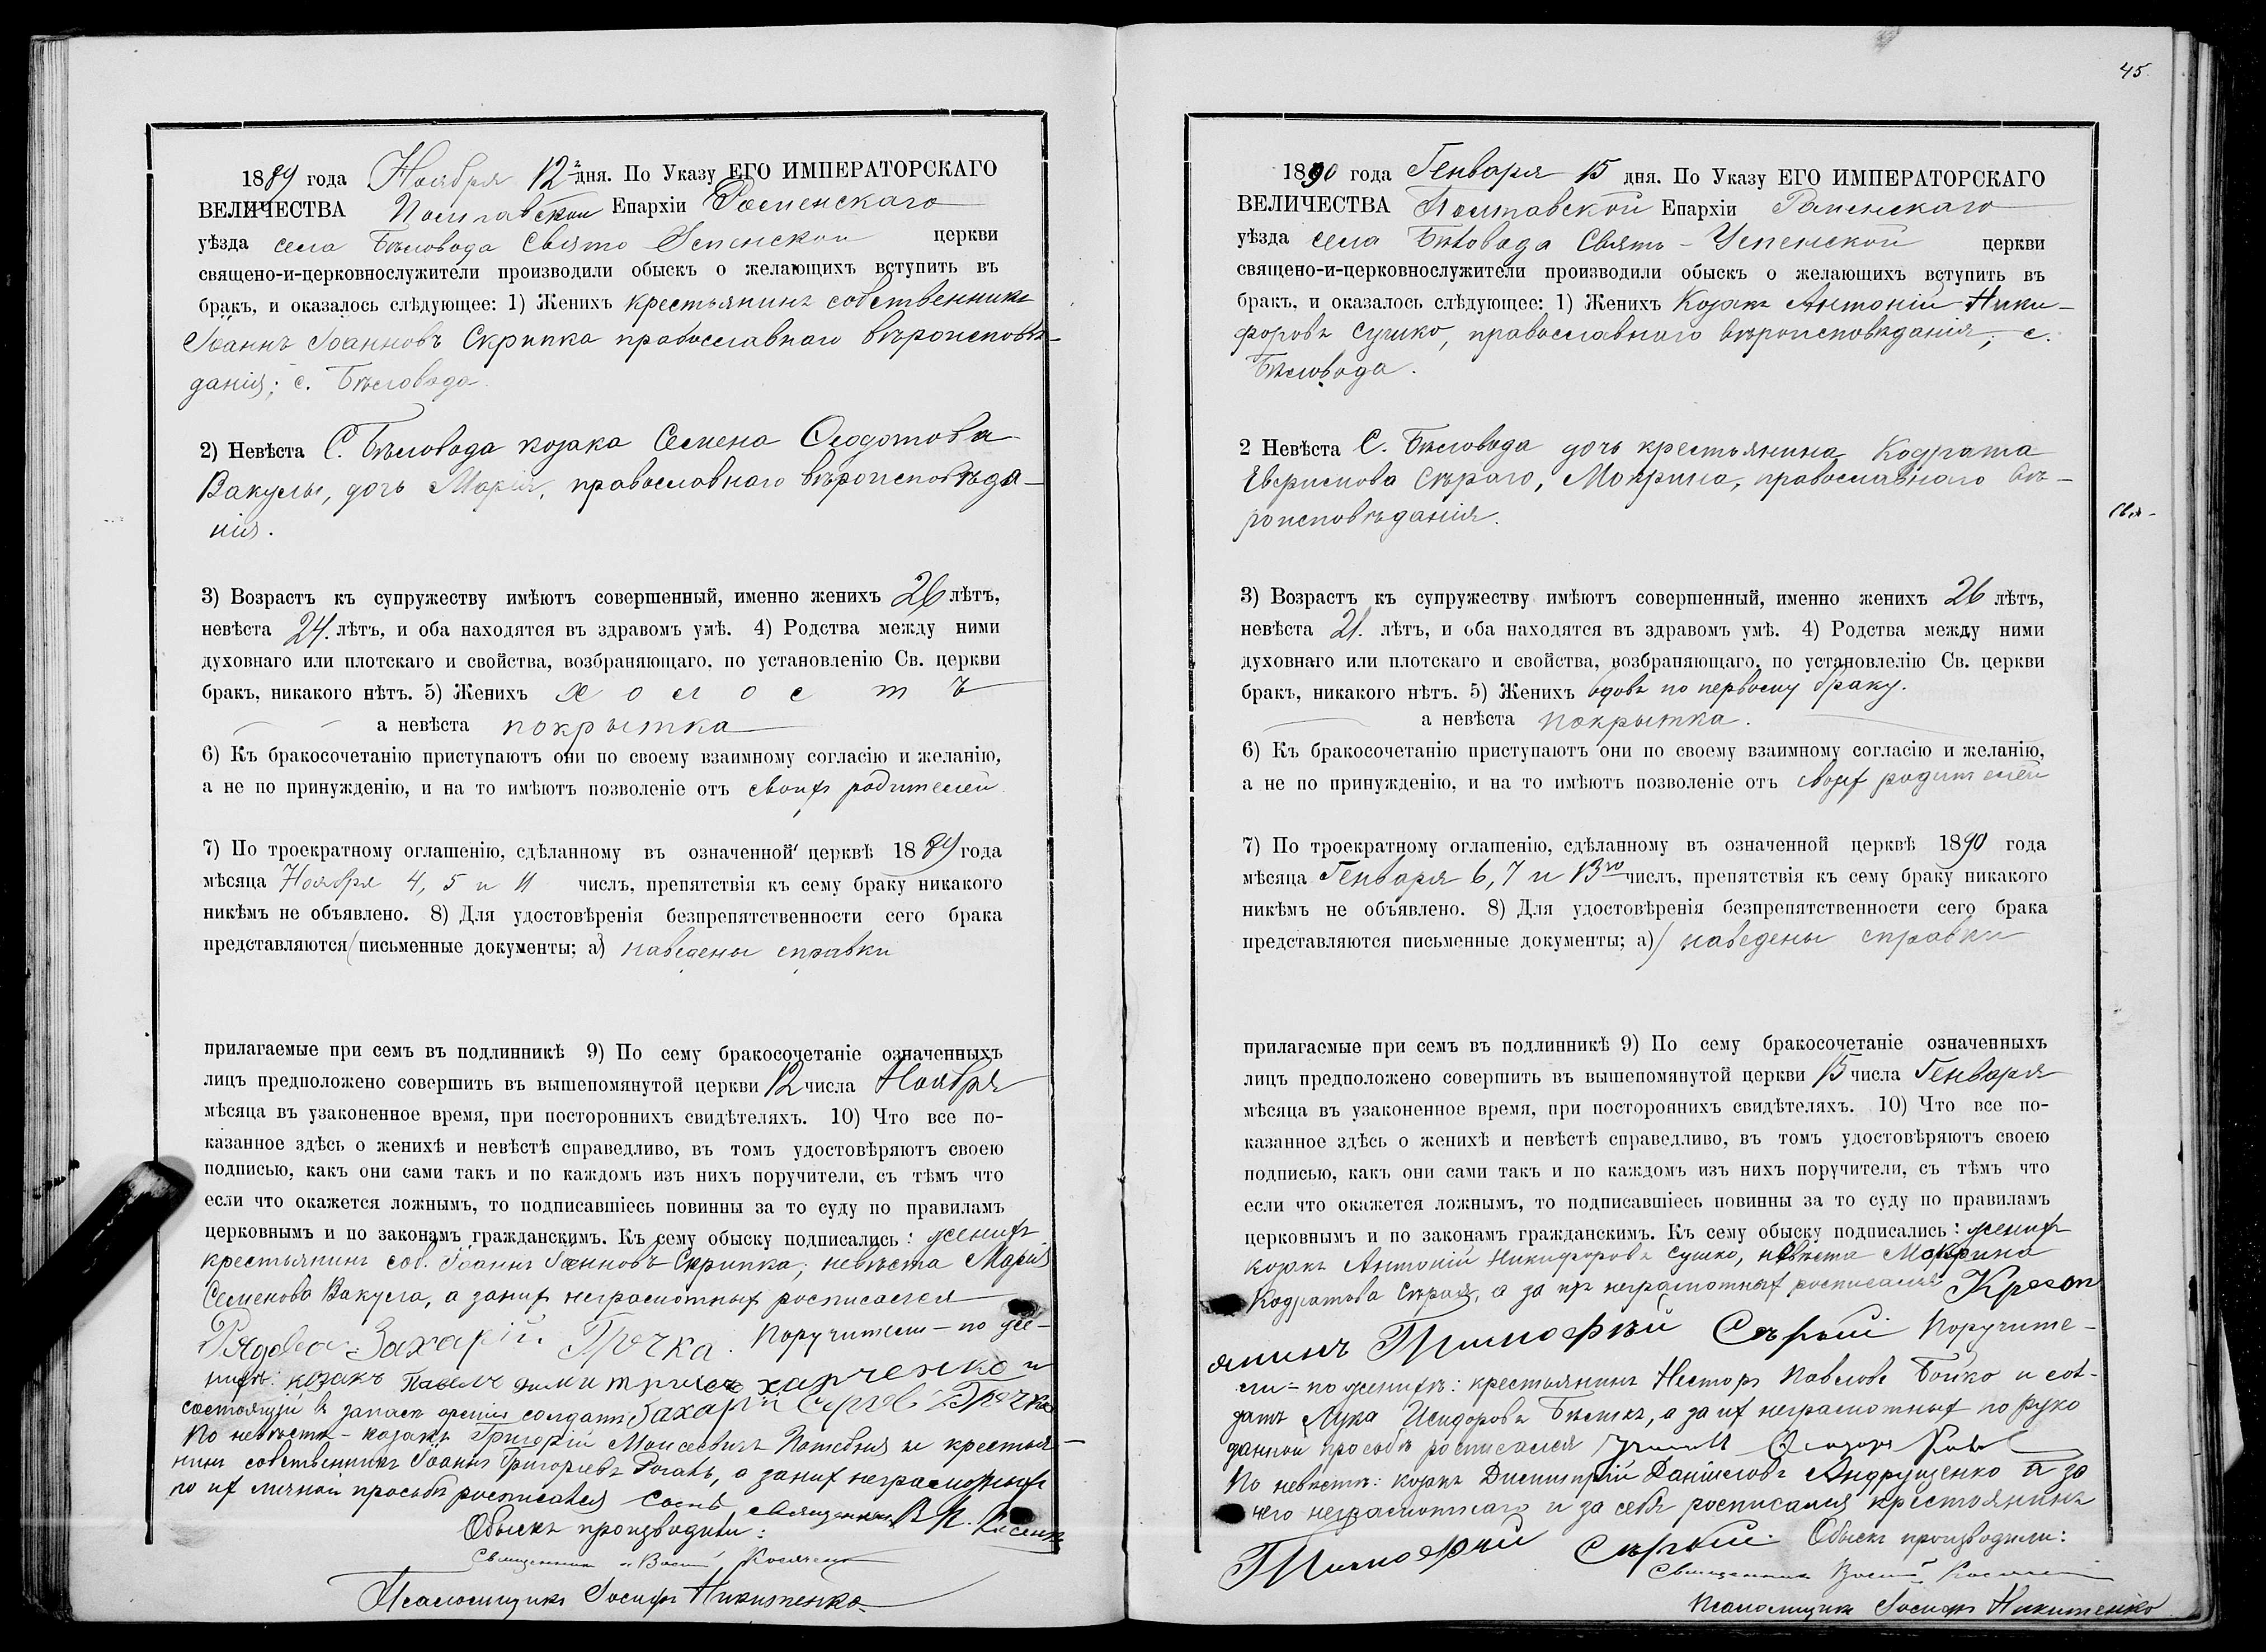 1889 года Ноября 12 дня. По Указу ЕГО ИМПЕРАТОРСКАГО
ВЕЛИЧЕСТВА Полтавской Епархіи Роменскаго
уѣзда села Бѣловода Свято Успенской церкви
священо-и-церковнослужители производили обыскъ о желающихъ вступить въ
бракъ, и оказалось слѣдующее: 1) Женихъ крестьянинъ собственникъ
Іоаннъ Іоанновъ Скрипка православнаго вѣроисповѣ-
данія; с. Бѣловода.
2) Невѣста С. Бѣловода козака Семена Ѳеодотова
Вакулы, дочь Марія, православнаго вѣроисповѣда-
нія.
3) Возрастъ къ супружеству имѣютъ совершенный, именно женихъ 26 лѣтъ,
невѣста 24. лѣтъ, и оба находятся въ здравомъ умѣ. 4) Родства между ними
духовнаго или плотскаго и свойства, возбраняющаго, по установленію Св. церкви
бракъ, никакого нѣтъ. 5) Женихъ холостъ
а невѣста покрытка
6) Къ бракосочетанію приступаютъ они по своему взаимному согласію и желанію,
а не по принужденію, и на то имѣютъ позволеніе отъ своихъ родителей
7) По троекратному оглашенію, сдѣланному въ означенной церквѣ 1889 года
мѣсяца Ноября 4, 5 и 11 числъ, препятствія къ сему браку никакого
никѣмъ не объявлено. 8) Для удостовѣренія безпрепятственности сего брака
представляются письменные документы; а) наведены справки
прилагаемые при семъ въ подлинникѣ 9) По сему бракосочетаніе означенныхъ
лицъ предположено совершить въ вышепомянутой церкви 12 числа Ноября
мѣсяца въ узаконенное время, при постороннихъ свидѣтеляхъ. 10) Что все по-
казанное здѣсь о женихѣ и невѣстѣ справедливо, въ томъ удостовѣряютъ своею
подписью, какъ они сами такъ и по каждомъ изъ нихъ поручители, съ тѣмъ что
если что окажется ложнымъ, то подписавшіесь повинны за то суду по правиламъ
церковнымъ и по законамъ гражданскимъ. Къ сему обыску подписались: женихъ
крестьянинъ соб. Іоаннъ Іоанновъ Скрипка; невѣста Марія
Семенова Вакула, а за них неграмотных росписался
Рядовой Захарій Гречка. Поручители – по же-
нихѣ: козакъ Павелъ Димитріевъ Харченко и
состоящій в запасѣ арміи солдатъ Захарій Гречка
По невѣстѣ – козакъ Григорій Моисеевичъ Потебня и крестья-
нинъ собственникъ Іоаннъ Григорьевъ Рогаль, а за них неграмотных
по их личной просьбѣ росписался священникъ
Обыскъ производили:
Священникъ Косяченко
Псаломщикъ Іосифъ Никитенко
45.
1890 года Генваря 15 дня. По Указу ЕГО ИМПЕРАТОРСКАГО
ВЕЛИЧЕСТВА Полтавской Епархіи Роменскаго
уѣзда села Бѣловода Свято-Успенской церкви
священо-и-церковнослужители производили обыскъ о желающихъ вступить въ
бракъ, и оказалось слѣдующее: 1) Женихъ Козакъ Антоній Ники-
форовъ Сушко, православнаго вѣроисповѣданія, с.
Бѣловода.
2 Невѣста С. Бѣловода дочь крестьянина Кодрата
Сѣраго, Мокрина, православнаго вѣ-
роисповѣданія.
3) Возрастъ къ супружеству имѣютъ совершенный, именно женихъ 26 лѣтъ,
невѣста 21. лѣтъ, и оба находятся въ здравомъ умѣ. 4) Родства между ними
духовнаго или плотскаго и свойства, возбраняющаго, по установлелію Св. церкви
бракъ, никакого нѣтъ. 5) Женихъ вдовъ по первому браку.
а невѣста покрытка.
6) Къ бракосочетанію приступаютъ они по своему взаимному согласію и желанію,
а не по принужденію, и на то имѣютъ позволеніе отъ своих родителей
7) По троекратному оглашенію, сдѣланному въ означенной церквѣ 1890 года
мѣсяца Генваря 6, 7 и 13го числъ, препятствія къ сему браку никакого
никѣмъ не объявлено. 8) Для удостовѣренія безпрепятственности сего брака
представляются письменные документы; а) наведены справки
прилагаемые при семъ въ подлинникѣ 9) По сему бракосочетаніе означенныхъ
лицъ предположено совершить въ вышепомянутой церкви 15 числа Генваря
мѣсяца въ узаконенное время, при постороннихъ свидѣтеляхъ. 10) Что все по-
казанное здѣсь о женихѣ и невѣстѣ справедливо, въ томъ удостовѣряютъ своею
подписью, какъ они сами такъ и по каждомъ изъ нихъ поручители, съ тѣмъ что
если что окажется ложнымъ, то подписавшіесь повинны за то суду по правиламъ
церковнымъ и по законамъ гражданскимъ. Къ сему обыску подписались: женихъ
козакъ Антоній Никифоровъ Сушко, невѣста Мокрина
Кодратова Сѣрая, а за них неграмотных росписался Кресть
янинъ Тимофѣй Сѣрый Поручите-
ли – по женихѣ: крестьянинъ Несторъ Павловъ Бойко и сол-
датъ Лука Исидоровъ Бѣликъ, а за их неграмотных по руко
данной просьбѣ росписался
По невѣстѣ: козакъ Димитрій Даніиловъ Андрущенко а за
него неграмотнаго и за себя росписался крестьянинъ
Тимофѣй Сѣрый Обыскъ производили:
Священникъ
Псаломщикъ Іосифъ Никитенко